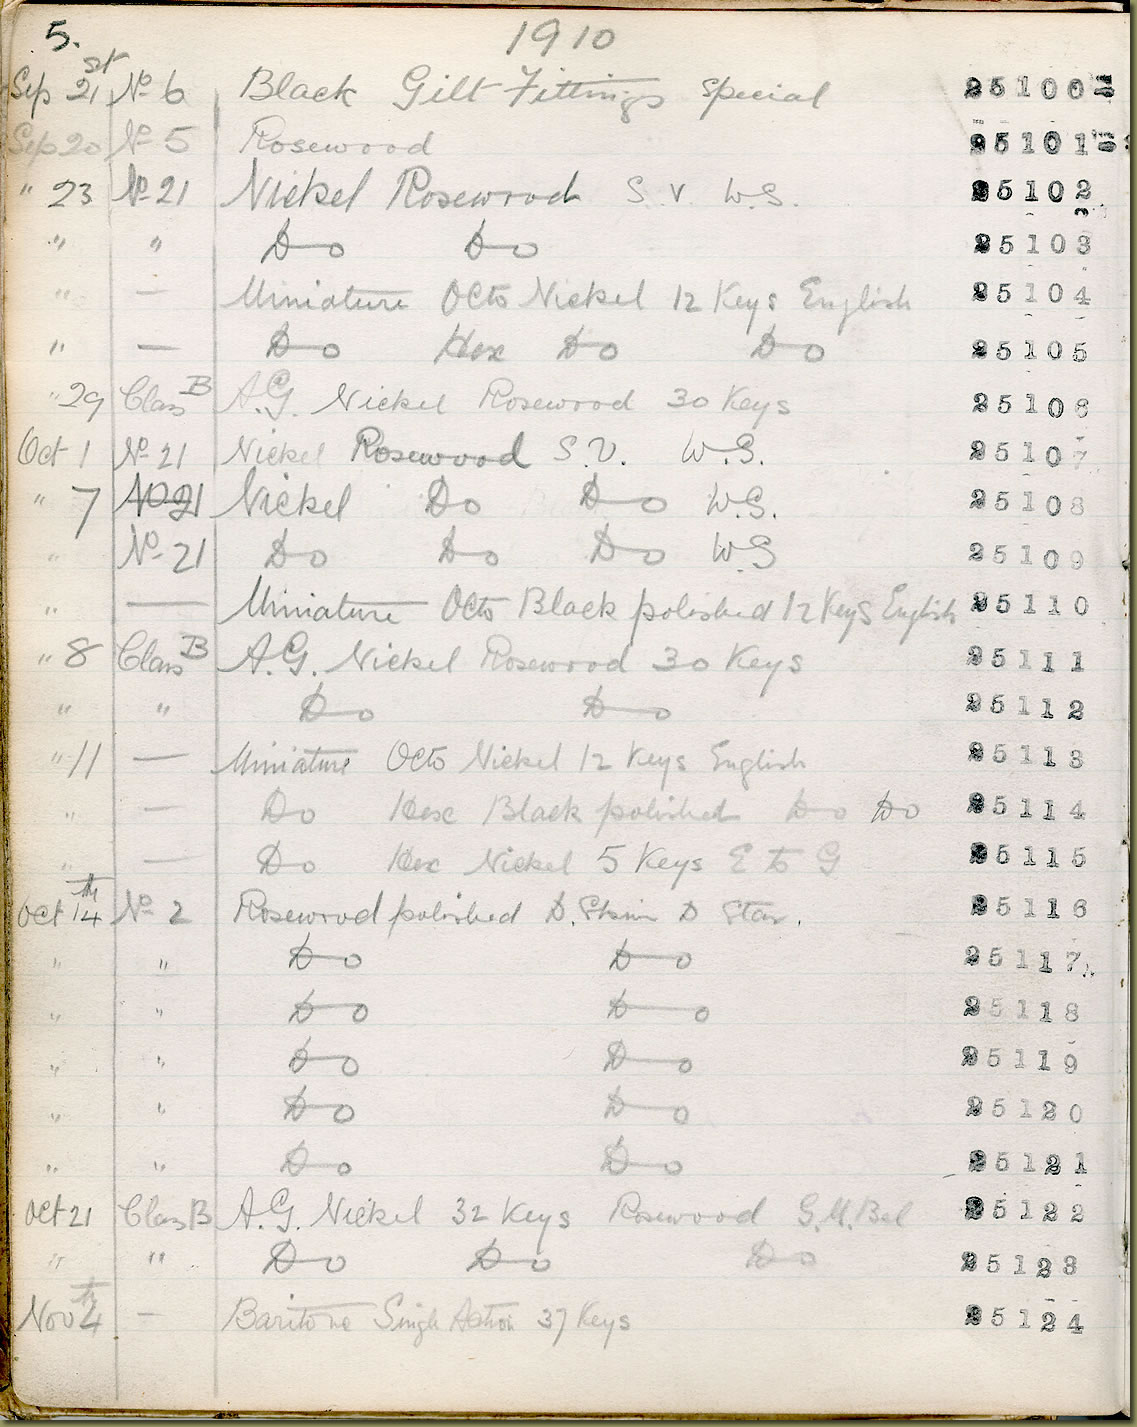 5. 1910
Sep 21st No 6 Black Gilt Fittings Special 25100
Sep 20 No 5 Rosewood 25101
" 23 No 21 Nickel Rosewood S.V. W.S. 25102
" " Do Do 25103
" — Miniature Octo Nickel 12 Keys English 25104
" — Do Hex Do Do 25105
" 29 Class B A.G. Nickel Rosewood 30 Keys 25106
Oct 1 No 21 Nickel Rosewood S.V. W.S. 25107
" 7 No 21 Nickel Do Do W.S. 25108
" No 21 Do Do Do W.S 25109
" — Miniature Octo Black polished 12 Keys English 25110
" 8 Class B A.G. Nickel Rosewood 30 Keys 25111
" " Do Do 25112
" 11 — Miniature Octo Nickel 12 Keys English 25113
" — Do Hex Black polished Do Do 25114
" — Do Hex Nickel 5 Keys E to G 25115
Oct 14th No 2 Rosewood polished D. D Star. 25116
" " Do Do 25117
" " Do Do 25118
" " Do Do 25119
" " Do Do 25120
" " Do Do 25121
Oct 21 Class B A.G. Nickel 32 Keys Rosewood Bel 25122
" " Do Do Do 25123
Nov 4th — Baritone Single Action 37 Keys 25124